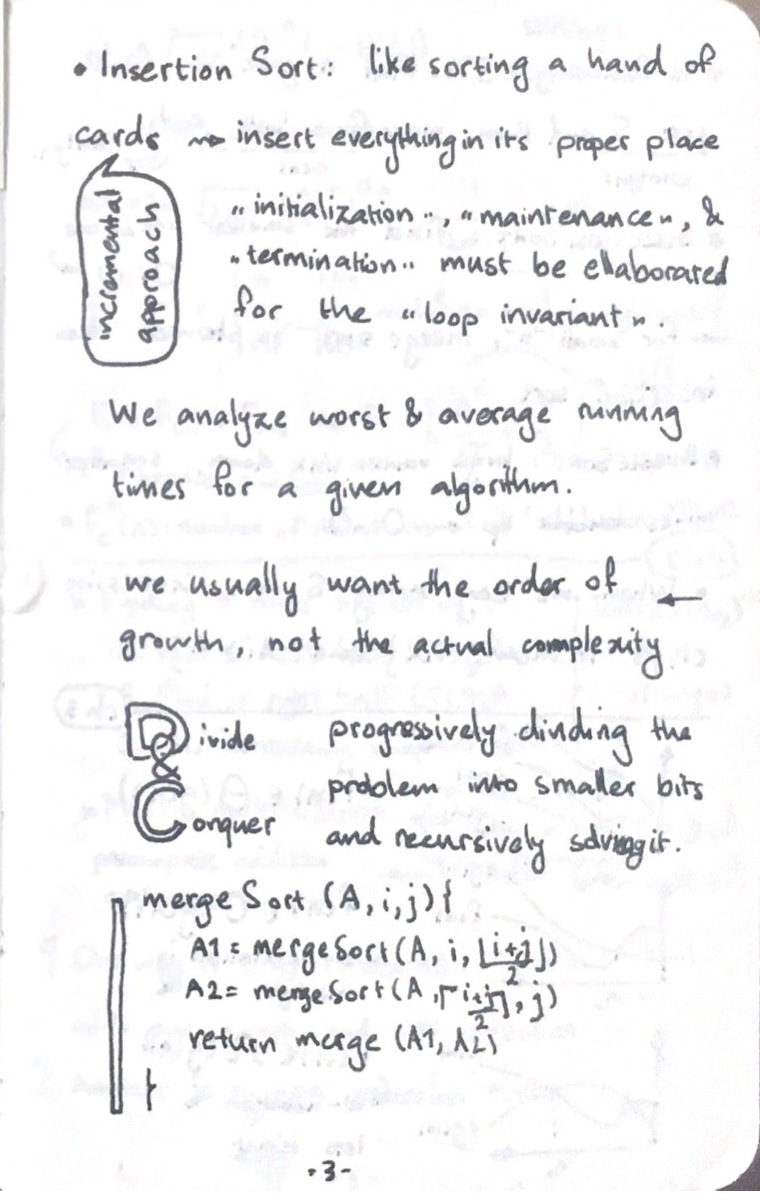 • Insertion Sort: like sorting a hand of
cards ⇝ insert everything in its proper place
incremental
approach
„initialization", „maintenance", &
„termination" must be elaborated
for the „loop invariant".
We analyze worst & average running
times for a given algorithm.
we usually want the order of ←
growth, not the actual complexity
Divide
&
Conquer
progressively dividing the
problem into smaller bits
and recursively solving it.
mergeSort (A, i, j) {
A1 = mergeSort (A, i, ⌊i+j/2⌋)
A2 = mergeSort (A, ⌈i+j/2⌉, j)
return merge (A1, A2)
}
-3-